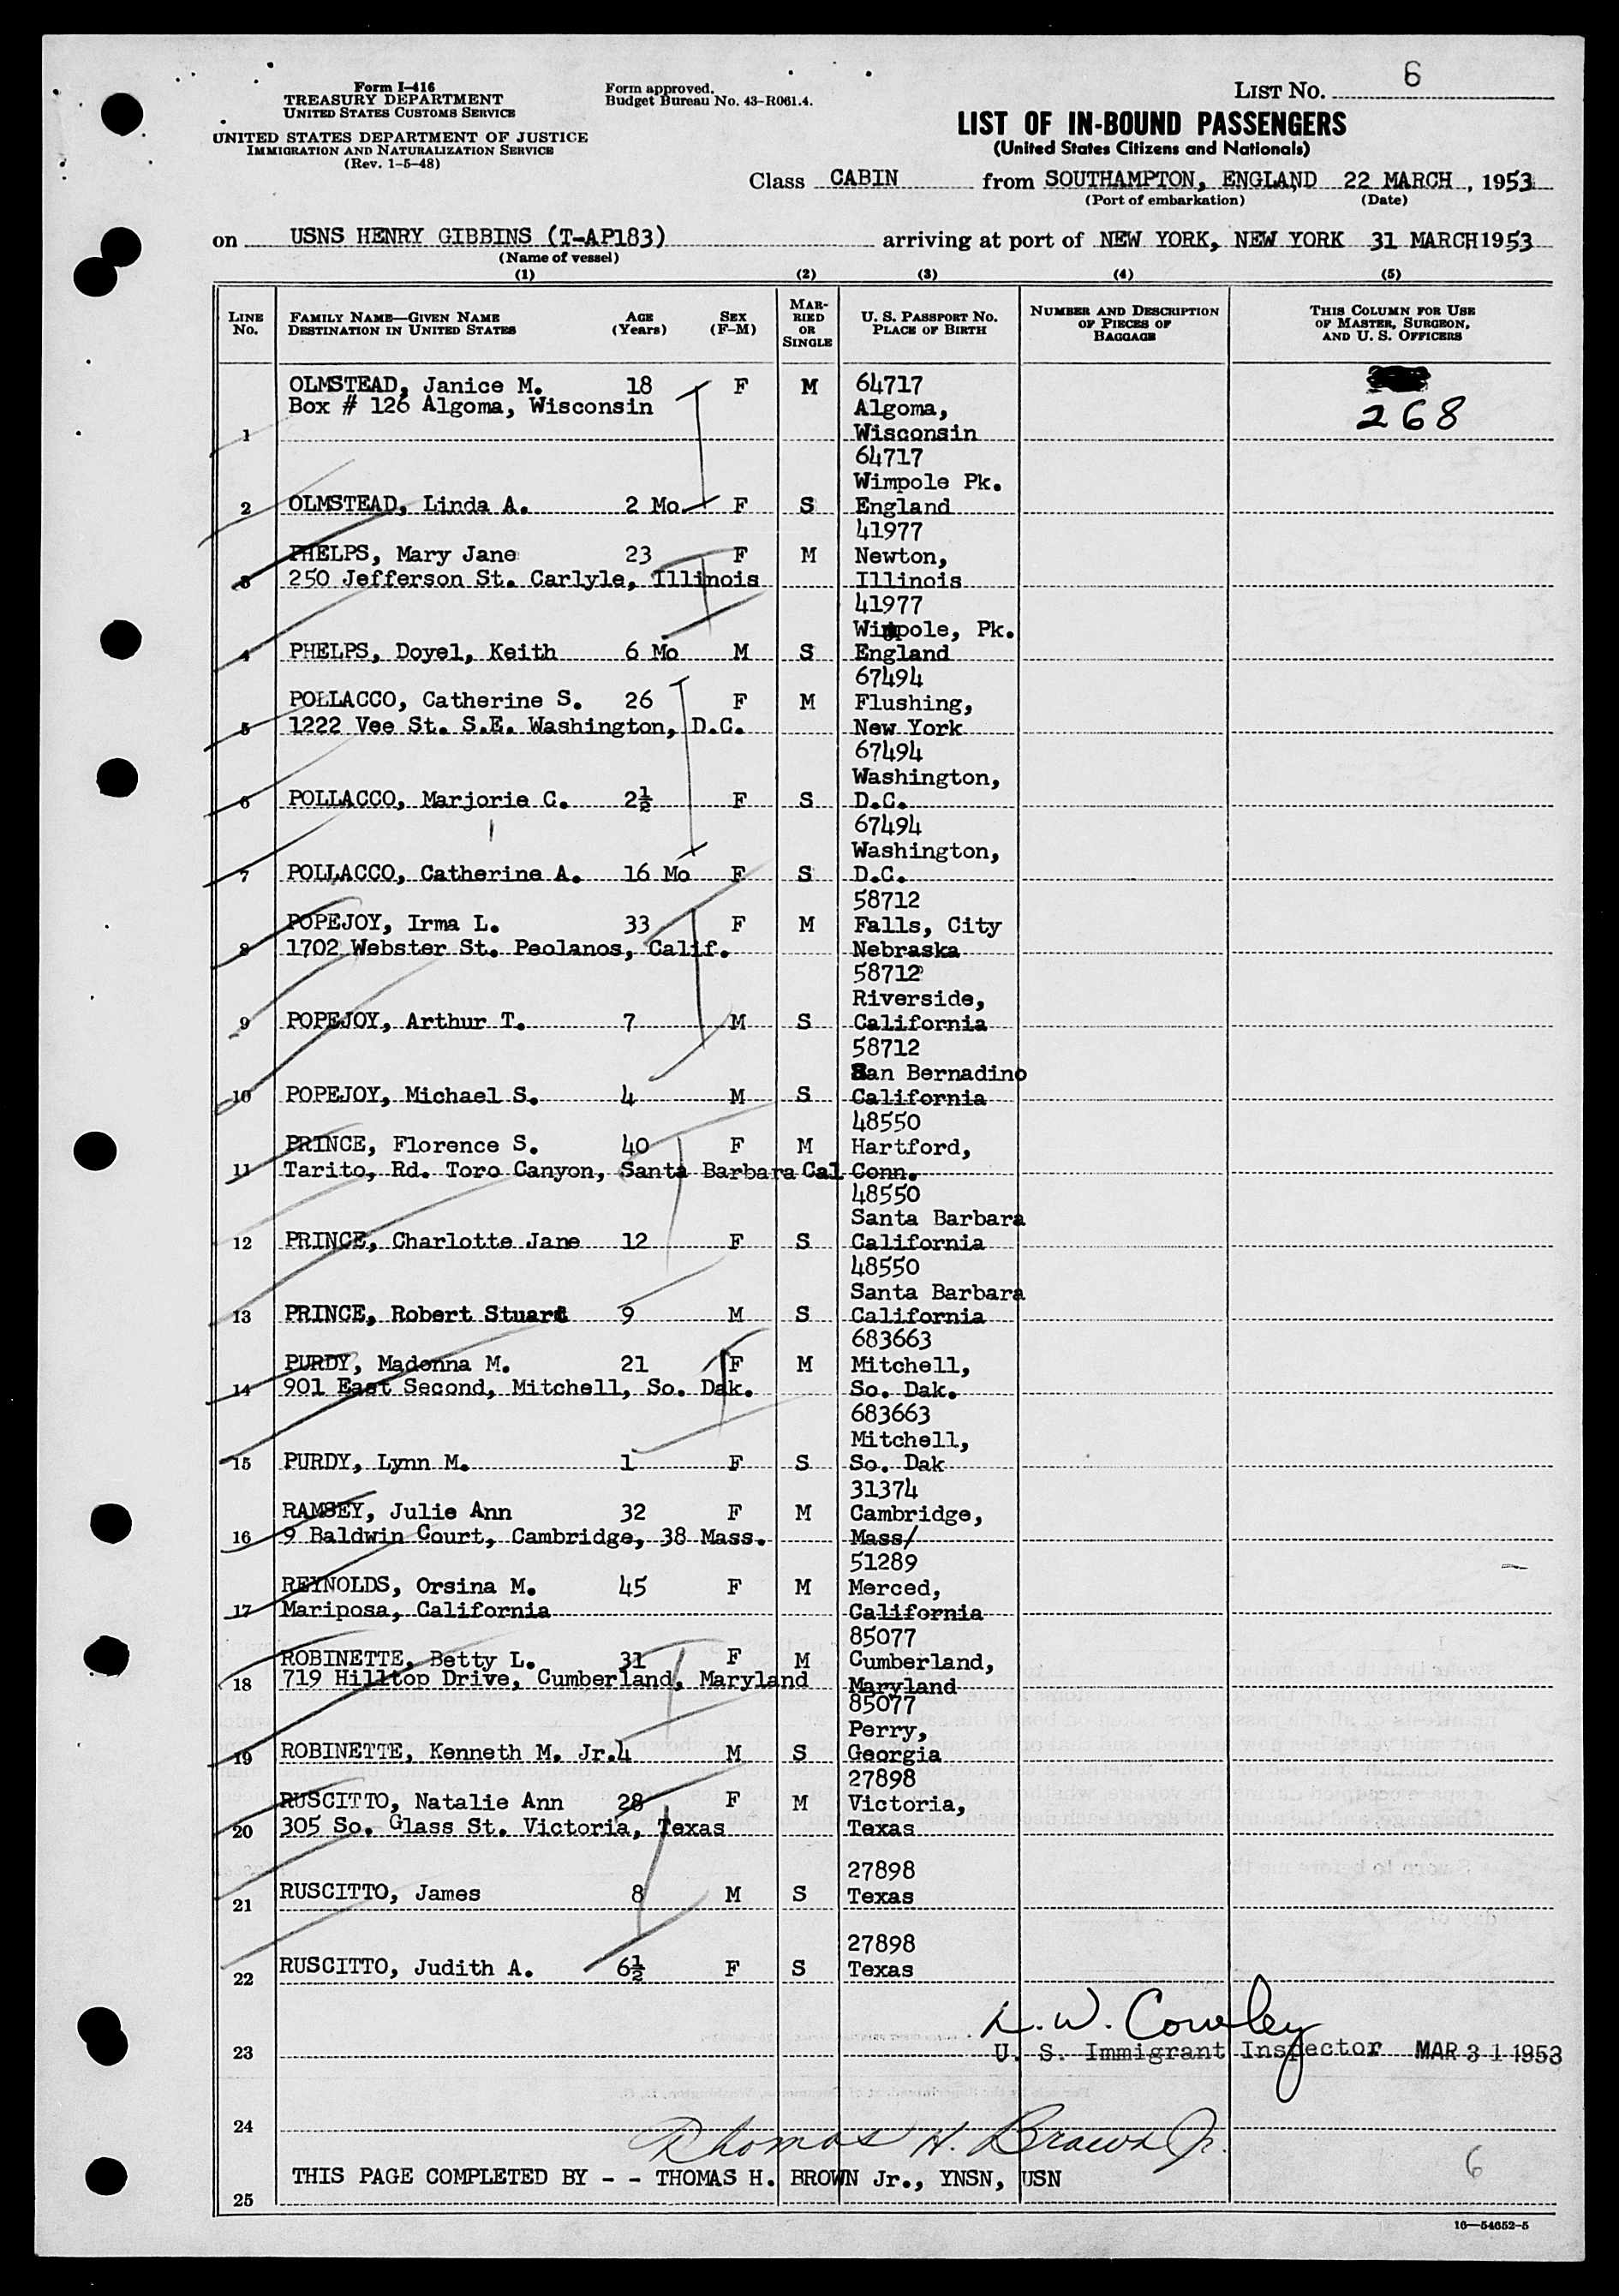 Form I-416
TREASURY DEPARTMENT
UNITED STATES CUSTOMS SERVICE
UNITED STATES DEPARTMENT OF JUSTICE
IMMIGRATION AND NATURALIZATION SERVICE
(Rev. 1-5-48)
Form approved.
Budget Bureau No. 43-R061.4.
LIST NO. 6
LIST OF IN-BOUND PASSENGERS
(United States Citizens and Nationals)
Class CABIN from SOUTHAMPTON, ENGLAND 22 MARCH, 1953
(Port of embarkation) (Date)
on USNS HENRY GIBBINS (T-AP183) arriving at port of NEW YORK, NEW YORK 31 MARCH 1953
(Name of vessel)
(1) (2) (3) (4) (5)
LINE NO. FAMILY NAME—GIVEN NAME DESTINATION IN UNITED STATES AGE (Years) SEX (F-M) MARRIED OR SINGLE U. S. PASSPORT NO. PLACE OF BIRTH NUMBER AND DESCRIPTION OF PIECES OF BAGGAGE THIS COLUMN FOR USE OF MASTER, SURGEON, AND U. S. OFFICERS
OLMSTEAD, Janice M. 18 F M 64717
Box # 126 Algoma, Wisconsin Algoma, 268
1 Wisconsin
64717
Wimpole Pk.
2 OLMSTEAD, Linda A. 2 Mo F S England
41977
PHELPS, Mary Jane 23 F M Newton,
3 250 Jefferson St. Carlyle, Illinois Illinois
41977
Wimpole, Pk.
4 PHELPS, Doyel, Keith 6 Mo M S England
67494
POLLACCO, Catherine S. 26 F M Flushing,
5 1222 Vee St. S.E. Washington, D.C. New York
67494
Washington,
6 POLLACCO, Marjorie C. 2½ F S D.C.
67494
Washington,
7 POLLACCO, Catherine A. 16 Mo F S D.C.
58712
POPEJOY, Irma L. 33 F M Falls, City
8 1702 Webster St. Peolanos, Calif. Nebraska
58712
Riverside,
9 POPEJOY, Arthur T. 7 M S California
58712
San Bernadino
10 POPEJOY, Michael S. 4 M S California
48550
PRINCE, Florence S. 40 F M Hartford,
11 Tarito, Rd. Toro Canyon, Santa Barbara Cal Conn.
48550
Santa Barbara
12 PRINCE, Charlotte Jane 12 F S California
48550
Santa Barbara
13 PRINCE, Robert Stuart 9 M S California
683663
PURDY, Madonna M. 21 F M Mitchell,
14 901 East Second, Mitchell, So. Dak. So. Dak.
683663
Mitchell,
15 PURDY, Lynn M. 1 F S So. Dak
31374
RAMSEY, Julie Ann 32 F M Cambridge,
16 9 Baldwin Court, Cambridge, 38 Mass. Mass/
51289
REYNOLDS, Orsina M. 45 F M Merced,
17 Mariposa, California California
85077
ROBINETTE, Betty L. 31 F M Cumberland,
18 719 Hilltop Drive, Cumberland, Maryland Maryland
85077
Perry,
19 ROBINETTE, Kenneth M. Jr. 4 M S Georgia
27898
RUSCITTO, Natalie Ann 28 F M Victoria,
20 305 So. Glass St. Victoria, Texas Texas
27898
21 RUSCITTO, James 8 M S Texas
27898
22 RUSCITTO, Judith A. 6½ F S Texas
L. W. Cowley
23 U. S. Immigrant Inspector MAR 31 1953
24
Thomas H. Brown Jr.
THIS PAGE COMPLETED BY - - THOMAS H. BROWN Jr., YNSN, USN 6
25
16—54652-5